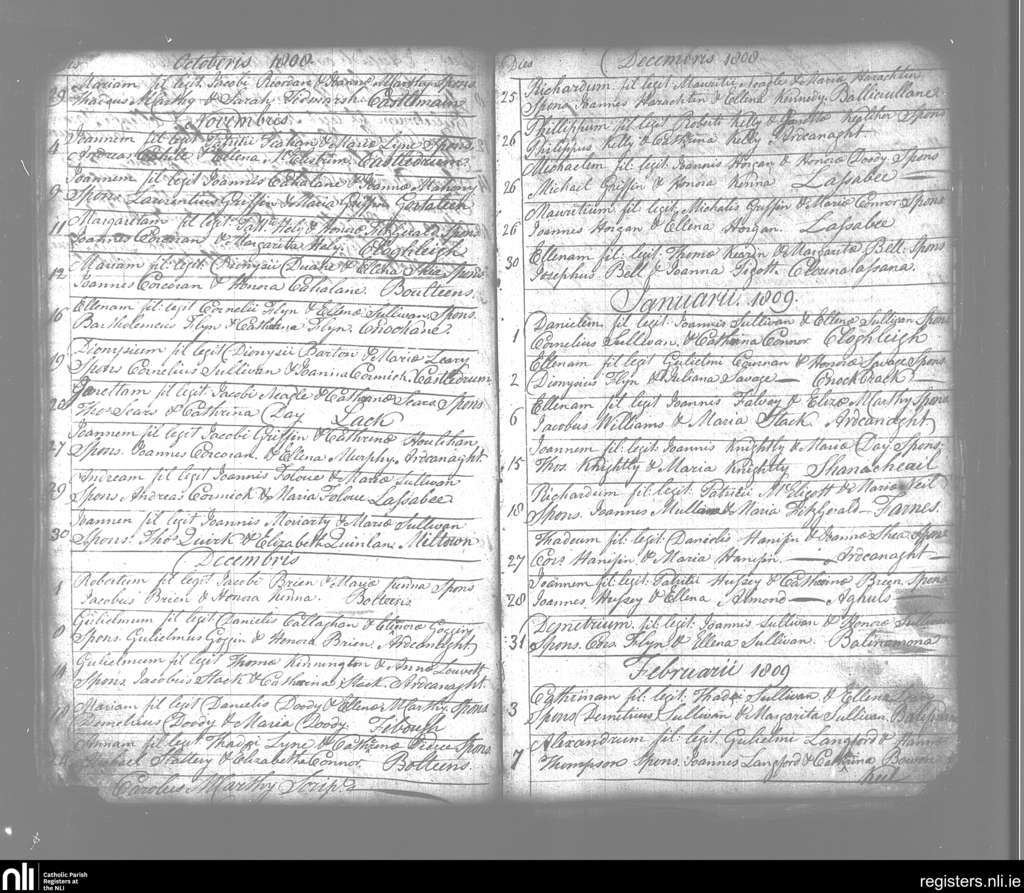 Octoberis 1808
29 Mariam fil: legit: Jacobi Riordan & Joannæ Marthy Spons
Thadeus Marthy & Sarah Castlemaine
Novembris
4 Joannem fil legit Patritii & Mariæ Lyne Spons
Andreas & Ellena Castledrum
9 Joannem fil: legit Joannis Cahalane & Joannæ Mahony
Spons Laurentius Griffin & Maria Griffin
11 Margaritam fil legit Patt: Hely & Honoræ Fitzgerald Spons
Joannes Corcoran & Margarita Hely. Cloghleigh
12 Mariam fil: legit: Dionysii & Ellenæ Shea Spons
Joannes Corcoran & Honora Cahalane. Boulteens.
16 Ellenam fil: legit Cornelii Flyn & Ellenæ Sullivan Spons.
Bartholemeus Flyn & Catherina Flyn. Cnockane.
19 Dionysium fil legit Dionysii Barton & Mariæ Leary
Spons Cornelius Sullivan & Joanna Cormick. Castledrum
fil legit Jacobi Neagle & Catharinæ Seara Spons
Thos Sears & Cathrina Day Lack
27 Joannem fil legit Jacobi Griffin & Cathrinæ Houlihan
Spons. Joannes Corcoran. & Ellena Murphy. Ardcanaght.
29 Andream fil legit Joannis Foloue & Mariæ Sullivan
Spons Andreas Cormick & Maria Foloue Lassabee
30 Joannem fil legit Joannis Moriarty & Mariæ Sullivan
Spons: Thos Quirk & Elizabeth Quinlan. Miltown
Decembris
1 Robertum fil legit Jacobi Brien & Mariæ Kenna Spons
Jacobus Brien & Honora Kenna. Bolteens
Gulielmum fil legit Danielis Callaghan & Elinoræ Goggin
Spons. Gulielmus Goggin & Honora Brien. Ardcanaght
14 Gulielmum fil legit Thomæ Kinnington & Annæ Louvett
Spons. Jacobus Slack & Catharina Slack. Ardcanaght.
Mariam fil legit Danielis Doody & Elenoræ Marthy. Spons
Demetrius Doody & Maria Doody. Fibough
Annam fil legit Thadei Lyne & Cathrinæ Peirce Spons
Michael Slattery & Elizabetha Connor. Bolteens.
Carolus Marthy Scrips
Dies Decembris 1808
25 Richardum fil: legit: Mauritii Neagle & Maria Harachtin
Spons Joannes Harachtin & Ellena Kennedy. Ballicrullane
26 Phillippum fil: legit Roberti Kelly & Spons
Philippus Kelly & Cathrina Kelly. Ardcanaght
26 Michaelem fil: legit: Joannis Horgan & Honoræ Doody Spons
Michael Griffin & Honora Kenna Lassabee
26 Mauritium fil: legit: Michalis Griffin & Mariæ Connor Spons
Joannes Horgan & Ellena Horgan. Lassabee
30 Ellenam fil: legit: Thomæ & Margarita Bell. Spons
Josephus Bell & Joanna Clounalassana.
Januarii. 1809.
1 Danielem. fil: legit: Joannis Sullivan & Ellenæ Sullivan Spons
Cornelius Sullivan. & Cathrina Connor Cloghleigh
2 Ellenam fil: legit Gulielmi & Honoræ Savage Spons.
Dionysius Flyn & Juliana Savage — Cnockback —
6 Ellenam fil: legit Joannis Falvey & Elizæ Marthy Spons
Jacobus Williams & Maria Slack. Ardcanaght
15 Joannem fil: legit: Joannis Knightly & Mariæ Day Spons:
Thos. Knightly & Maria Knightly Shanacheail
18 Richardum fil: legit: Patricii McEligott & Mariæ Neil
Spons. Joannes & Maria FitzGerald — Farnes.
27 Thadeum fil: legit: Danielis Hanifin & Joannæ Shea Spons
Cors Hanifin & Maria Hanifin — Ardcanaght —
28 Joannem fil: legit: Patritii Hussey & Catharinæ Breen Spons
Joannes Hussey & Ellena Almond — Aghuls —
31 Demetrium. fil: legit: Joannis Sullivan & Honoræ Sullivan
Spons. Cors Flyn & Ellena Sullivan. Balinamona
Februarii 1809
3 Cathrinam fil: legit: Thadei Sullivan & Ellenæ
Spons Demetrius Sullivan & Margarita Sullivan.
7 Alexandrum fil: legit Gulielmi Langford & Hannæ
Thompson Spons. Joannes Langford & Cathrina Bowen
Keel
nli
Catholic Parish
Registers at
the NLI
registers.nli.ie